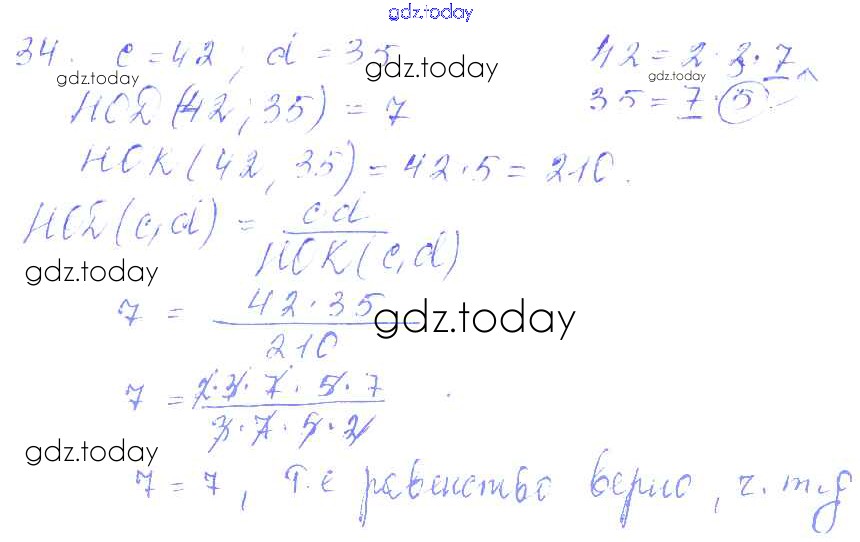 gdz.today
34. c = 42 ; d = 35 42 = 2 · 3 · 7
gdz.today gdz.today gdz.today
НОД (42 ; 35) = 7 35 = 7 · 5
НОК (42, 35) = 42 · 5 = 210.
НОД (c, d) = c·d / НОК (c, d)
gdz.today
7 = 42 · 35 / 210
gdz.today
7 = 2 · 3 · 7 · 5 · 7 / 3 · 7 · 5 · 2
gdz.today
7 = 7, т.е равенство верно, ч. т. д